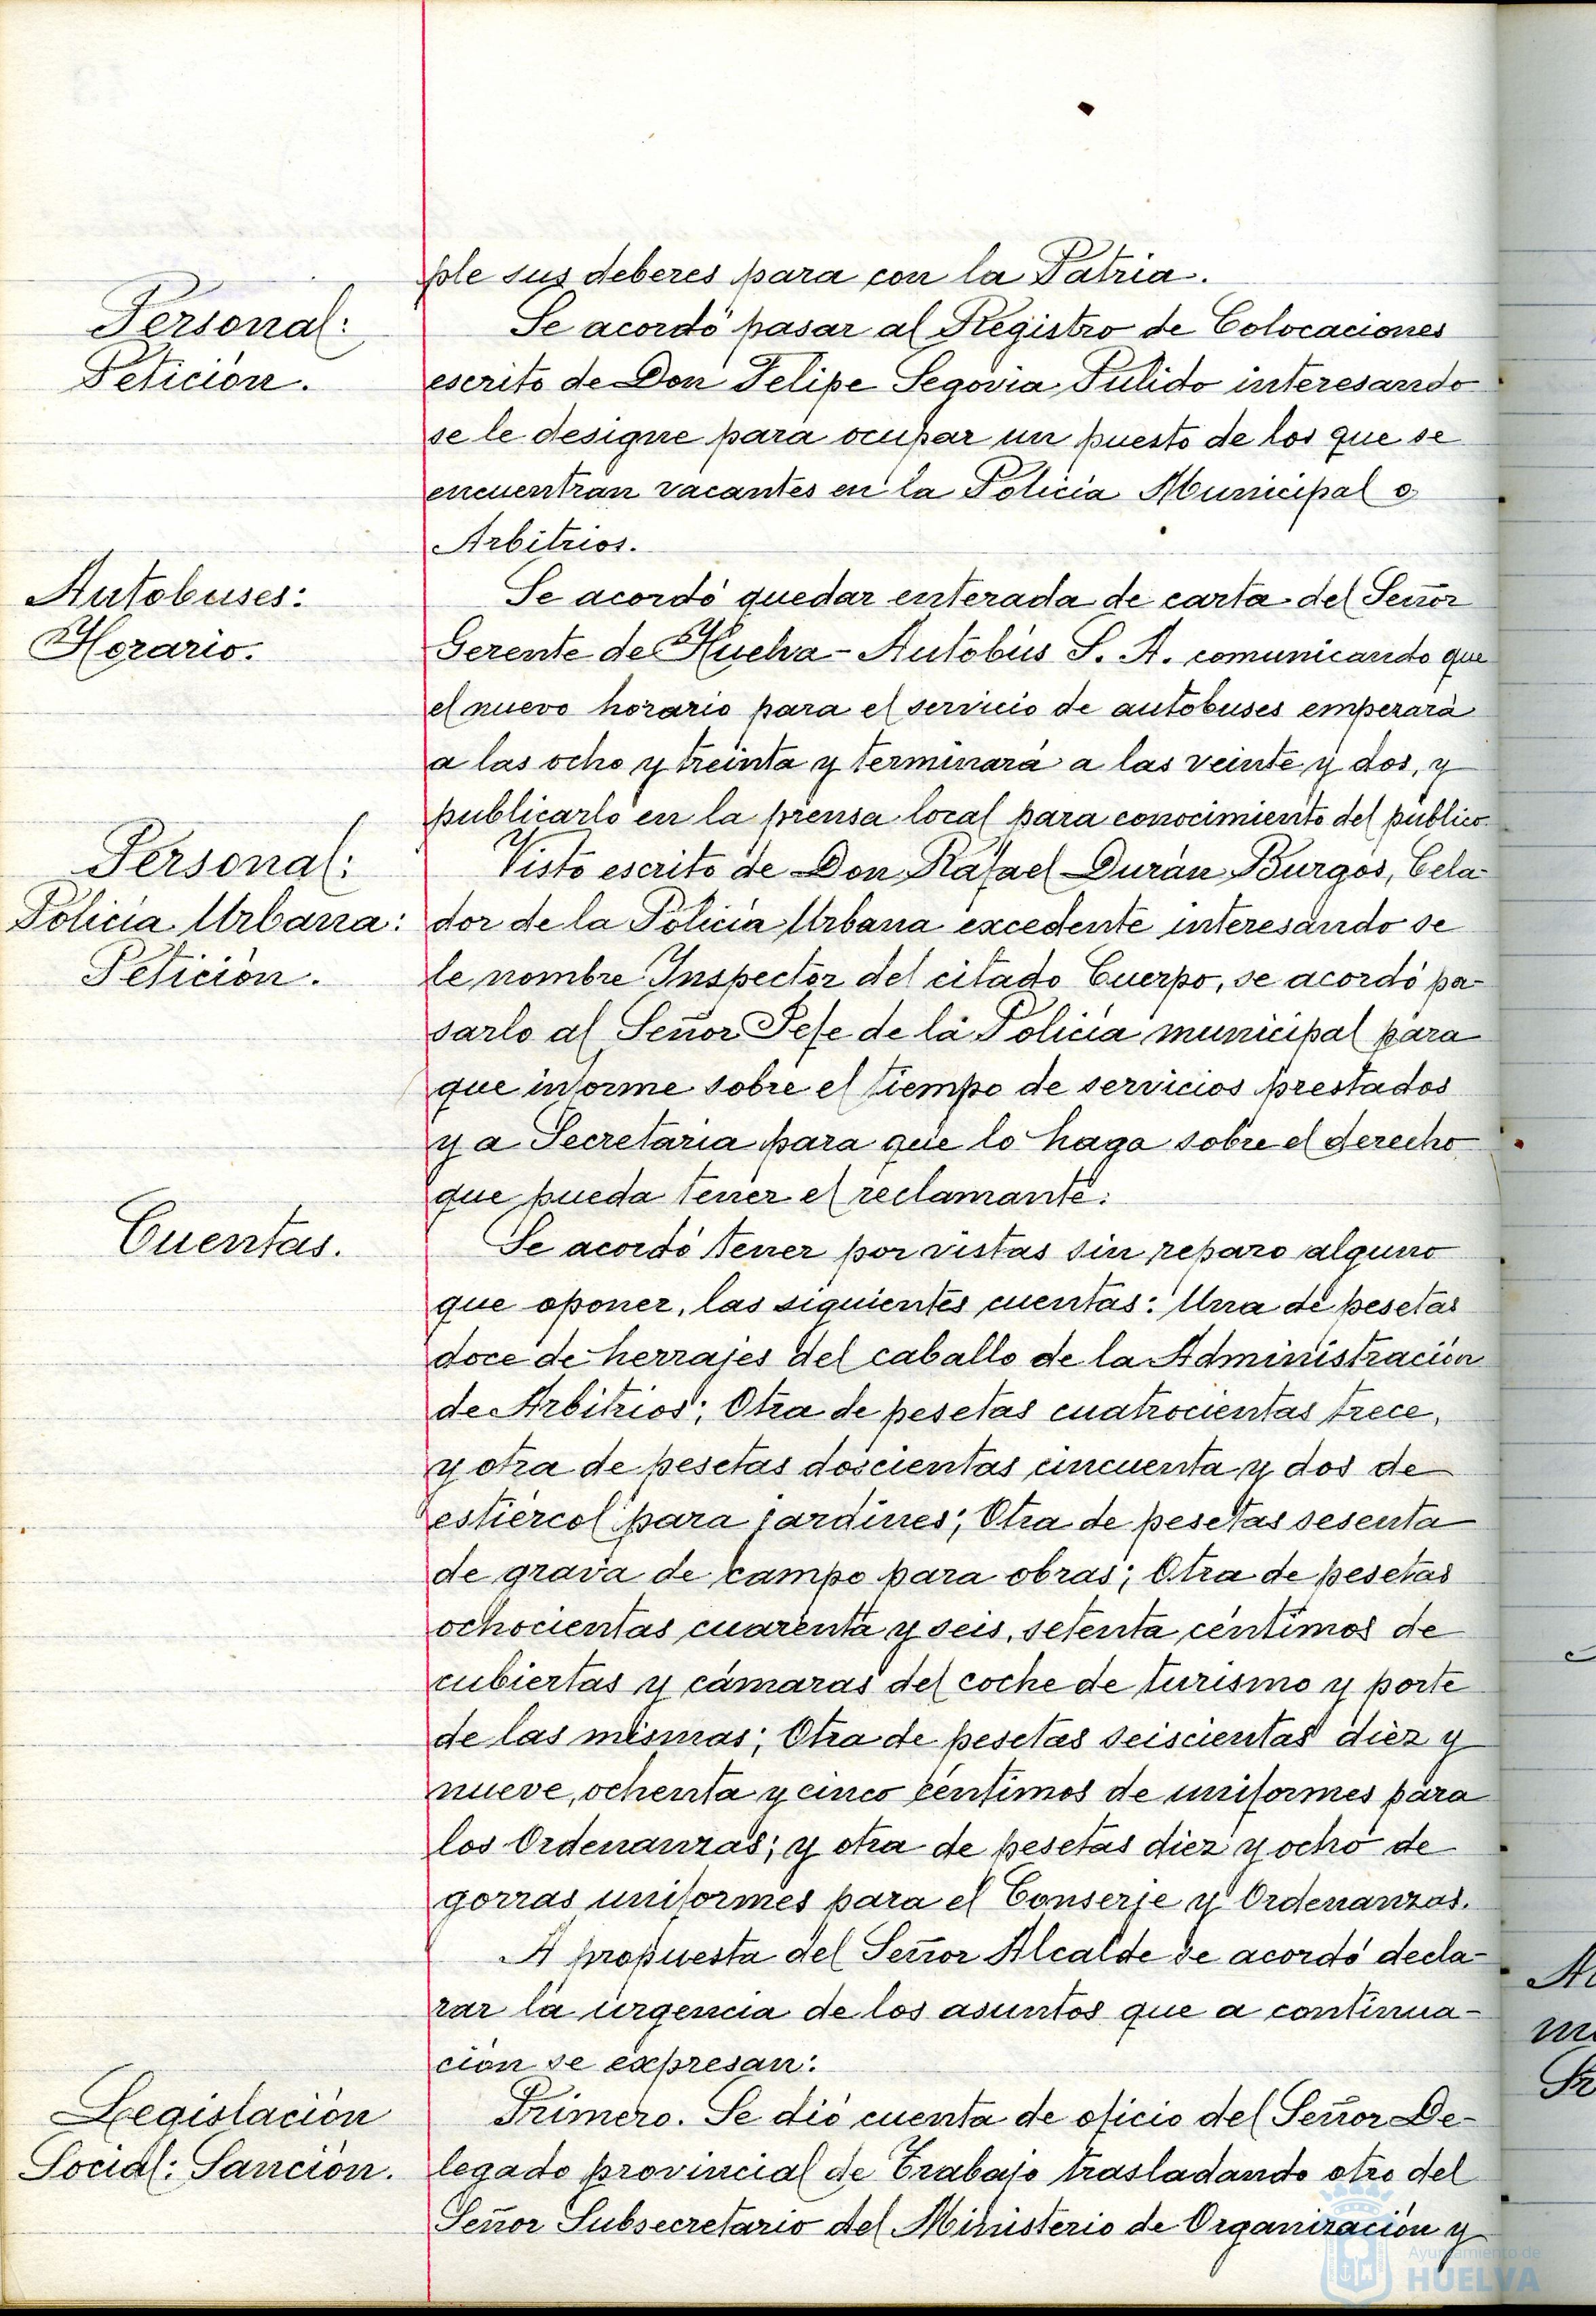 ple sus deberes para con la Patria.
Personal:
Petición.
Se acordó pasar al Registro de Colocaciones
escrito de Don Felipe Segovia Pulido interesando
se le designe para ocupar un puesto de los que se
encuentran vacantes en la Policia Municipal o
Arbitrios.
Autobuses:
Horario.
Se acordó quedar enterada de carta del Señor
Gerente de Huelva-Autobús S. A. comunicando que
el nuevo horario para el servicio de autobuses emperará
a las ocho y treinta y terminará a las veinte y dos, y
publicarlo en la prensa local para conocimiento del público.
Personal:
Policia Urbana:
Petición.
Visto escrito de Don Rafael Durán Burgos, Cela-
dor de la Policía Urbana excedente interesando se
le nombre Inspector del citado Cuerpo, se acordó pa-
sarlo al Señor Jefe de la Policía municipal para
que informe sobre el tiempo de servicios prestados
y a Secretaria para que lo haga sobre el derecho
que pueda tener el reclamante.
Cuentas.
Se acordó tener por vistas sin reparo alguno
que oponer, las siguientes cuentas: Una de pesetas
doce de herrajes del caballo de la Administración
de Arbitrios; Otra de pesetas cuatrocientas trece,
y otra de pesetas doscientas cincuenta y dos de
estiércol para jardines; Otra de pesetas sesenta
de grava de campo para obras; Otra de pesetas
ochocientas cuarenta y seis, setenta céntimos de
cubiertas y cámaras del coche de turismo y porte
de las mismas; Otra de pesetas seiscientas diez y
nueve, ochenta y cinco céntimos de uniformes para
los Ordenanzas; y otra de pesetas diez y ocho de
gorras uniformes para el Conserje y Ordenanzas.
A propuesta del Señor Alcalde se acordó decla-
rar la urgencia de los asuntos que a continua-
ción se expresan:
Legislación
Social: Sanción.
Primero. Se dió cuenta de oficio del Señor De-
legado provincial de Trabajo trasladando otro del
Señor Subsecretario del Ministerio de Organización y
Ayuntamiento de
HUELVA